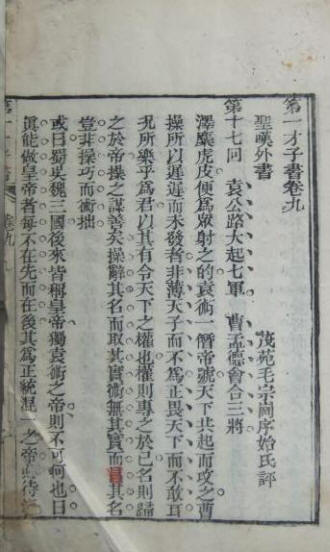 第一才子書卷九
聖嘆外書 茂苑毛宗崗序始氏評
第十七回 袁公路大起七軍 曹孟德會合三將
澤麋虎皮便為眾射之的袁術一僭帝號天下共起而攻之曹
操所以遲遲而未發者非薄天子而不為正畏天下而不敢耳
况所樂乎為君以其有令天下之權也權則專之於已名則歸
之於帝操之謀善矣操辭其名而取其實術無其實而冒其名
豈非操巧而術拙
或曰蜀吳魏三國後來皆稱皇帝獨袁術之帝則不可何也曰
眞能做皇帝者每不在先而在後其為正統混一之帝
子書 卷九